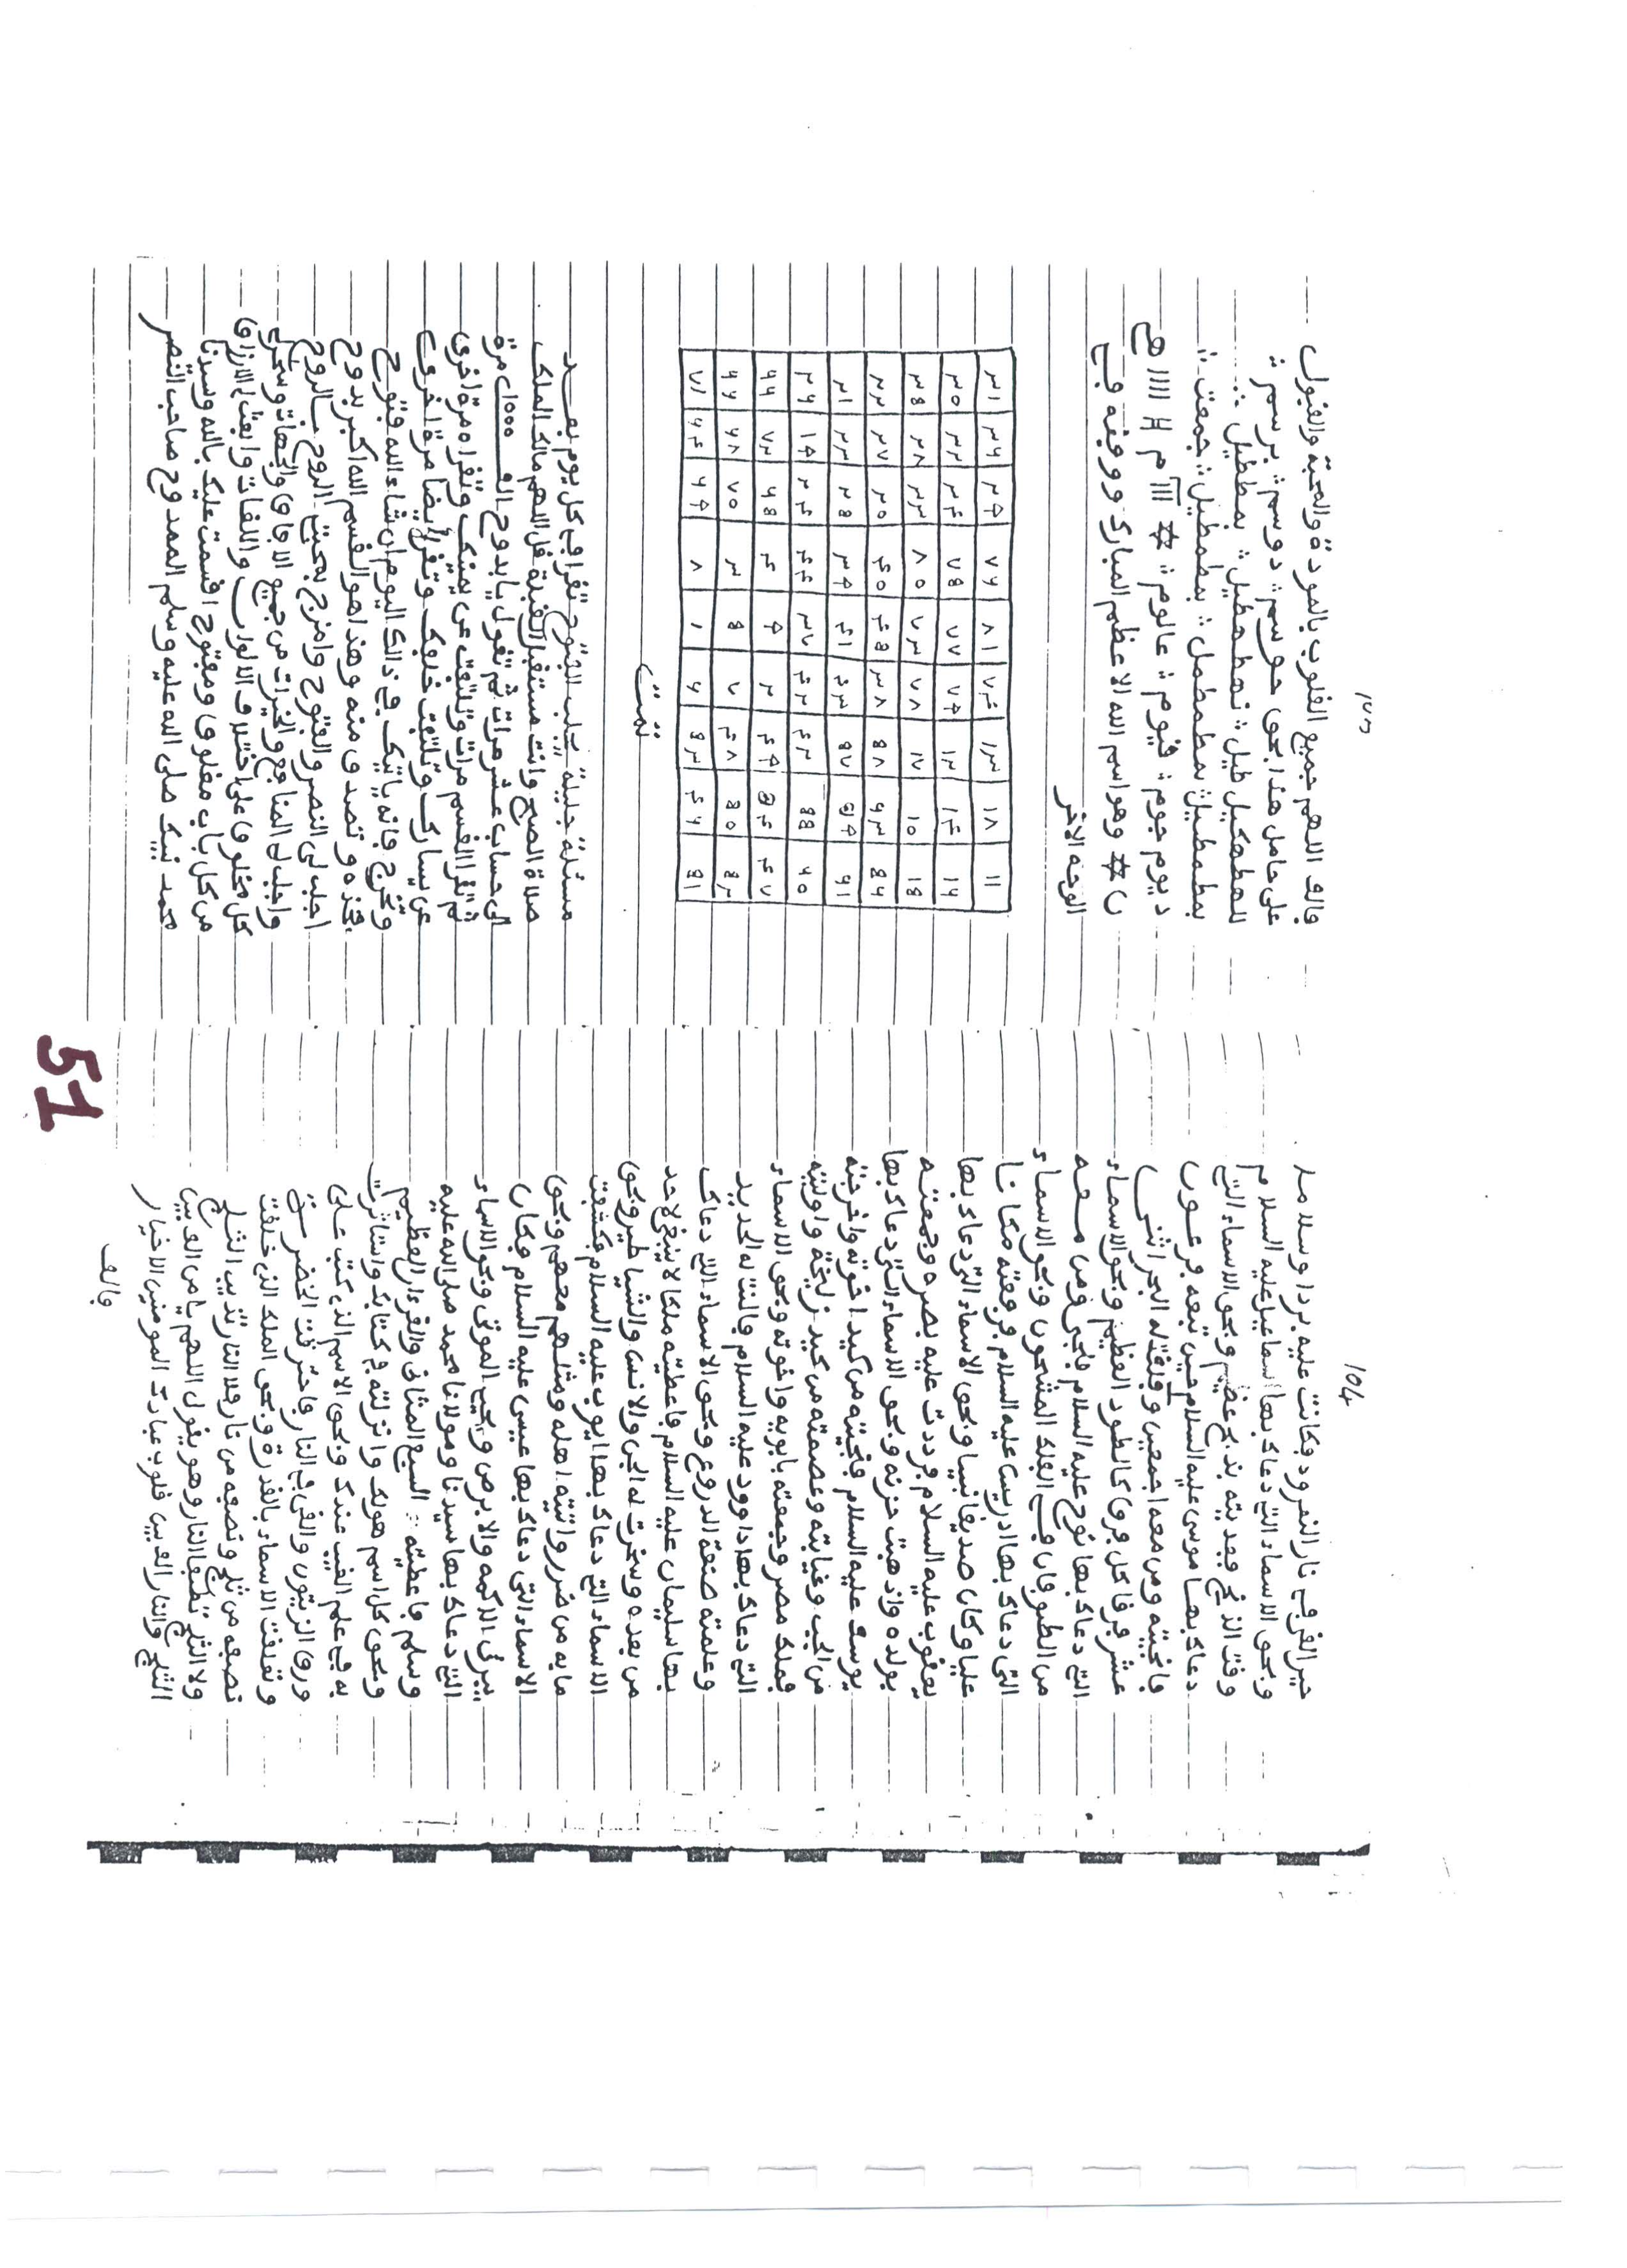 104
خير القرى في نار النمرود فكانت عليه بردا وسلاما
وبحق الاسماء التي دعاك بها اسماعيل عليه السلام
وقت الذبح ففديته بذبح عظيم وبحق الاسماء التي
دعاك بها موسى عليه السلام حين تبعه فرعون
فانجيته ومن معه اجمعين وفلقت له البحر اثنى
عشر فرقا كل فرق كالطود العظيم وبحق الاسماء
التي دعاك بها نوح عليه السلام فنجي ومن معه
من الطوفان في الفلك المشحون وبحق الاسماء
التي دعاك بها ادريس عليه السلام فرفعته مكانا
عليا وكان صديقا نبيا وبحق الاسماء التي دعاك بها
يعقوب عليه السلام فرددت عليه بصره وجمعته
بولده واذهبت حزنه وبحق الاسماء التي دعاك بها
يوسف عليه السلام فنجيته من كيد اخوته واخرجته
من الجب وغيابته وعصمته من كيد زليخة واوليته
فملك مصر وجمعته بابويه واخوته وبحق الاسماء
التي دعاك بها داوود عليه السلام فالنت له الحديد
وعلمته صنعة الدروع وبحق الاسماء التي دعاك
بها سليمان عليه السلام فاعطيته ملكا لا ينبغي لاحد
من بعده وسخرت له الجن والانس والشياطير وبحق
الاسماء التي دعاك بها ايوب عليه السلام فكشفت
ما به من ضر وواتيته اهله ومثلهم معهم وبحق
الاسماء التي دعاك بها عيسى عليه السلام فكان
يبرئ الاكمه والابرص ويحي الموتى وبحق الاسماء
التي دعاك بها سيدنا ومولانا محمد صلى الله عليه
وسلم فاعطيته السبع المثاني والقرءان العظيم
وبحق كل اسم هو لك وانزلته في كتابك واستاثرت
به في علم الغيب عندك وبحق الاسم الذي كتب على
ورق الزيتون والقي في النار فاحترقت الخضر
وتعلقت الاسماء بالقدرة وبحق الملك الذي خلقت
نصفه من ثلج ونصفه من نار فلا النار تذيب الثلج
ولا الثلج تطفئ النار وهو يقول اللهم يا من الف بين
الثلج والنار الف بين قلوب عبادك المومنين الاخيار
فالف
فالف اللهم جميع القلوب بالمودة والمحبة والقبول
على حامل هذا بحق حوسم دوسم برسم
للهطهكيل طيل نهطهطيل بمططيل
بمطمطيل بمطمطمل بمطمطيل جمعت
ديوم جوم قيوم عالوم
ن وهو اسم الله الاعظم المبارك ووفقه في
الوجه الاخر
٣١ ٣٦ ٢٩ ٧٦ ٨١ ٧٤ ١٣ ١٨ ١١
٣٠ ٣٢ ٣٤ ٧٥ ٧٧ ٧٩ ١٢ ١٤ ١٦
٣٥ ٢٨ ٣٣ ٨٠ ٧٣ ٧٨ ١٧ ١٠ ١٥
٢٢ ٢٧ ٢٠ ٤٠ ٤٥ ٣٨ ٥٨ ٦٣ ٥٦
٢١ ٢٣ ٢٥ ٣٩ ٤١ ٤٣ ٥٧ ٥٩ ٦١
٢٦ ١٩ ٢٤ ٤٤ ٣٧ ٤٢ ٦٢ ٥٥ ٦٠
٦٧ ٧٢ ٦٥ ٤ ٩ ٢ ٤٩ ٥٤ ٤٧
٦٦ ٦٨ ٧٠ ٣ ٥ ٧ ٤٨ ٥٠ ٥٢
٧١ ٦٤ ٦٩ ٨ ١ ٦ ٥٣ ٤٦ ٥١
تمت
مسئلة جليلة لجلب الفتوح تقرا في كل يوم بعد
صلاة الصبح وانت مستقبل القبلة قل اللهم مالك الملك
الى حساب عشر مرات ثم تقول يا بدوح الف 1000 مرة
ثم تقرا القسم مرات وتلتفت عن يمينك وتقراه مرة اخرى
عن يسارك وتلتفت خلفك وتقرا ايضا مرة اخرى
وتخرج فانه ياتيك في ذالك اليوم ان شاء الله فتوح
فخذه وتصدق منه وهذا هو القسم الله اكبر بدوح
اجلب لي النصر والفتوح وامزج بمحبتي الروح بالروح
واجلب لي المنافع والخيرات من جميع الافاق والجهات وسخر لي
كل مخلوق على اختلاف الالوان واللغات وابعث لي الارزاق
من كل باب مغلوق ومفتوح اقسمت عليك بالله وسيدنا
محمد نبيك صلى الله عليه وسلم الممدوح صاحب النصر
51